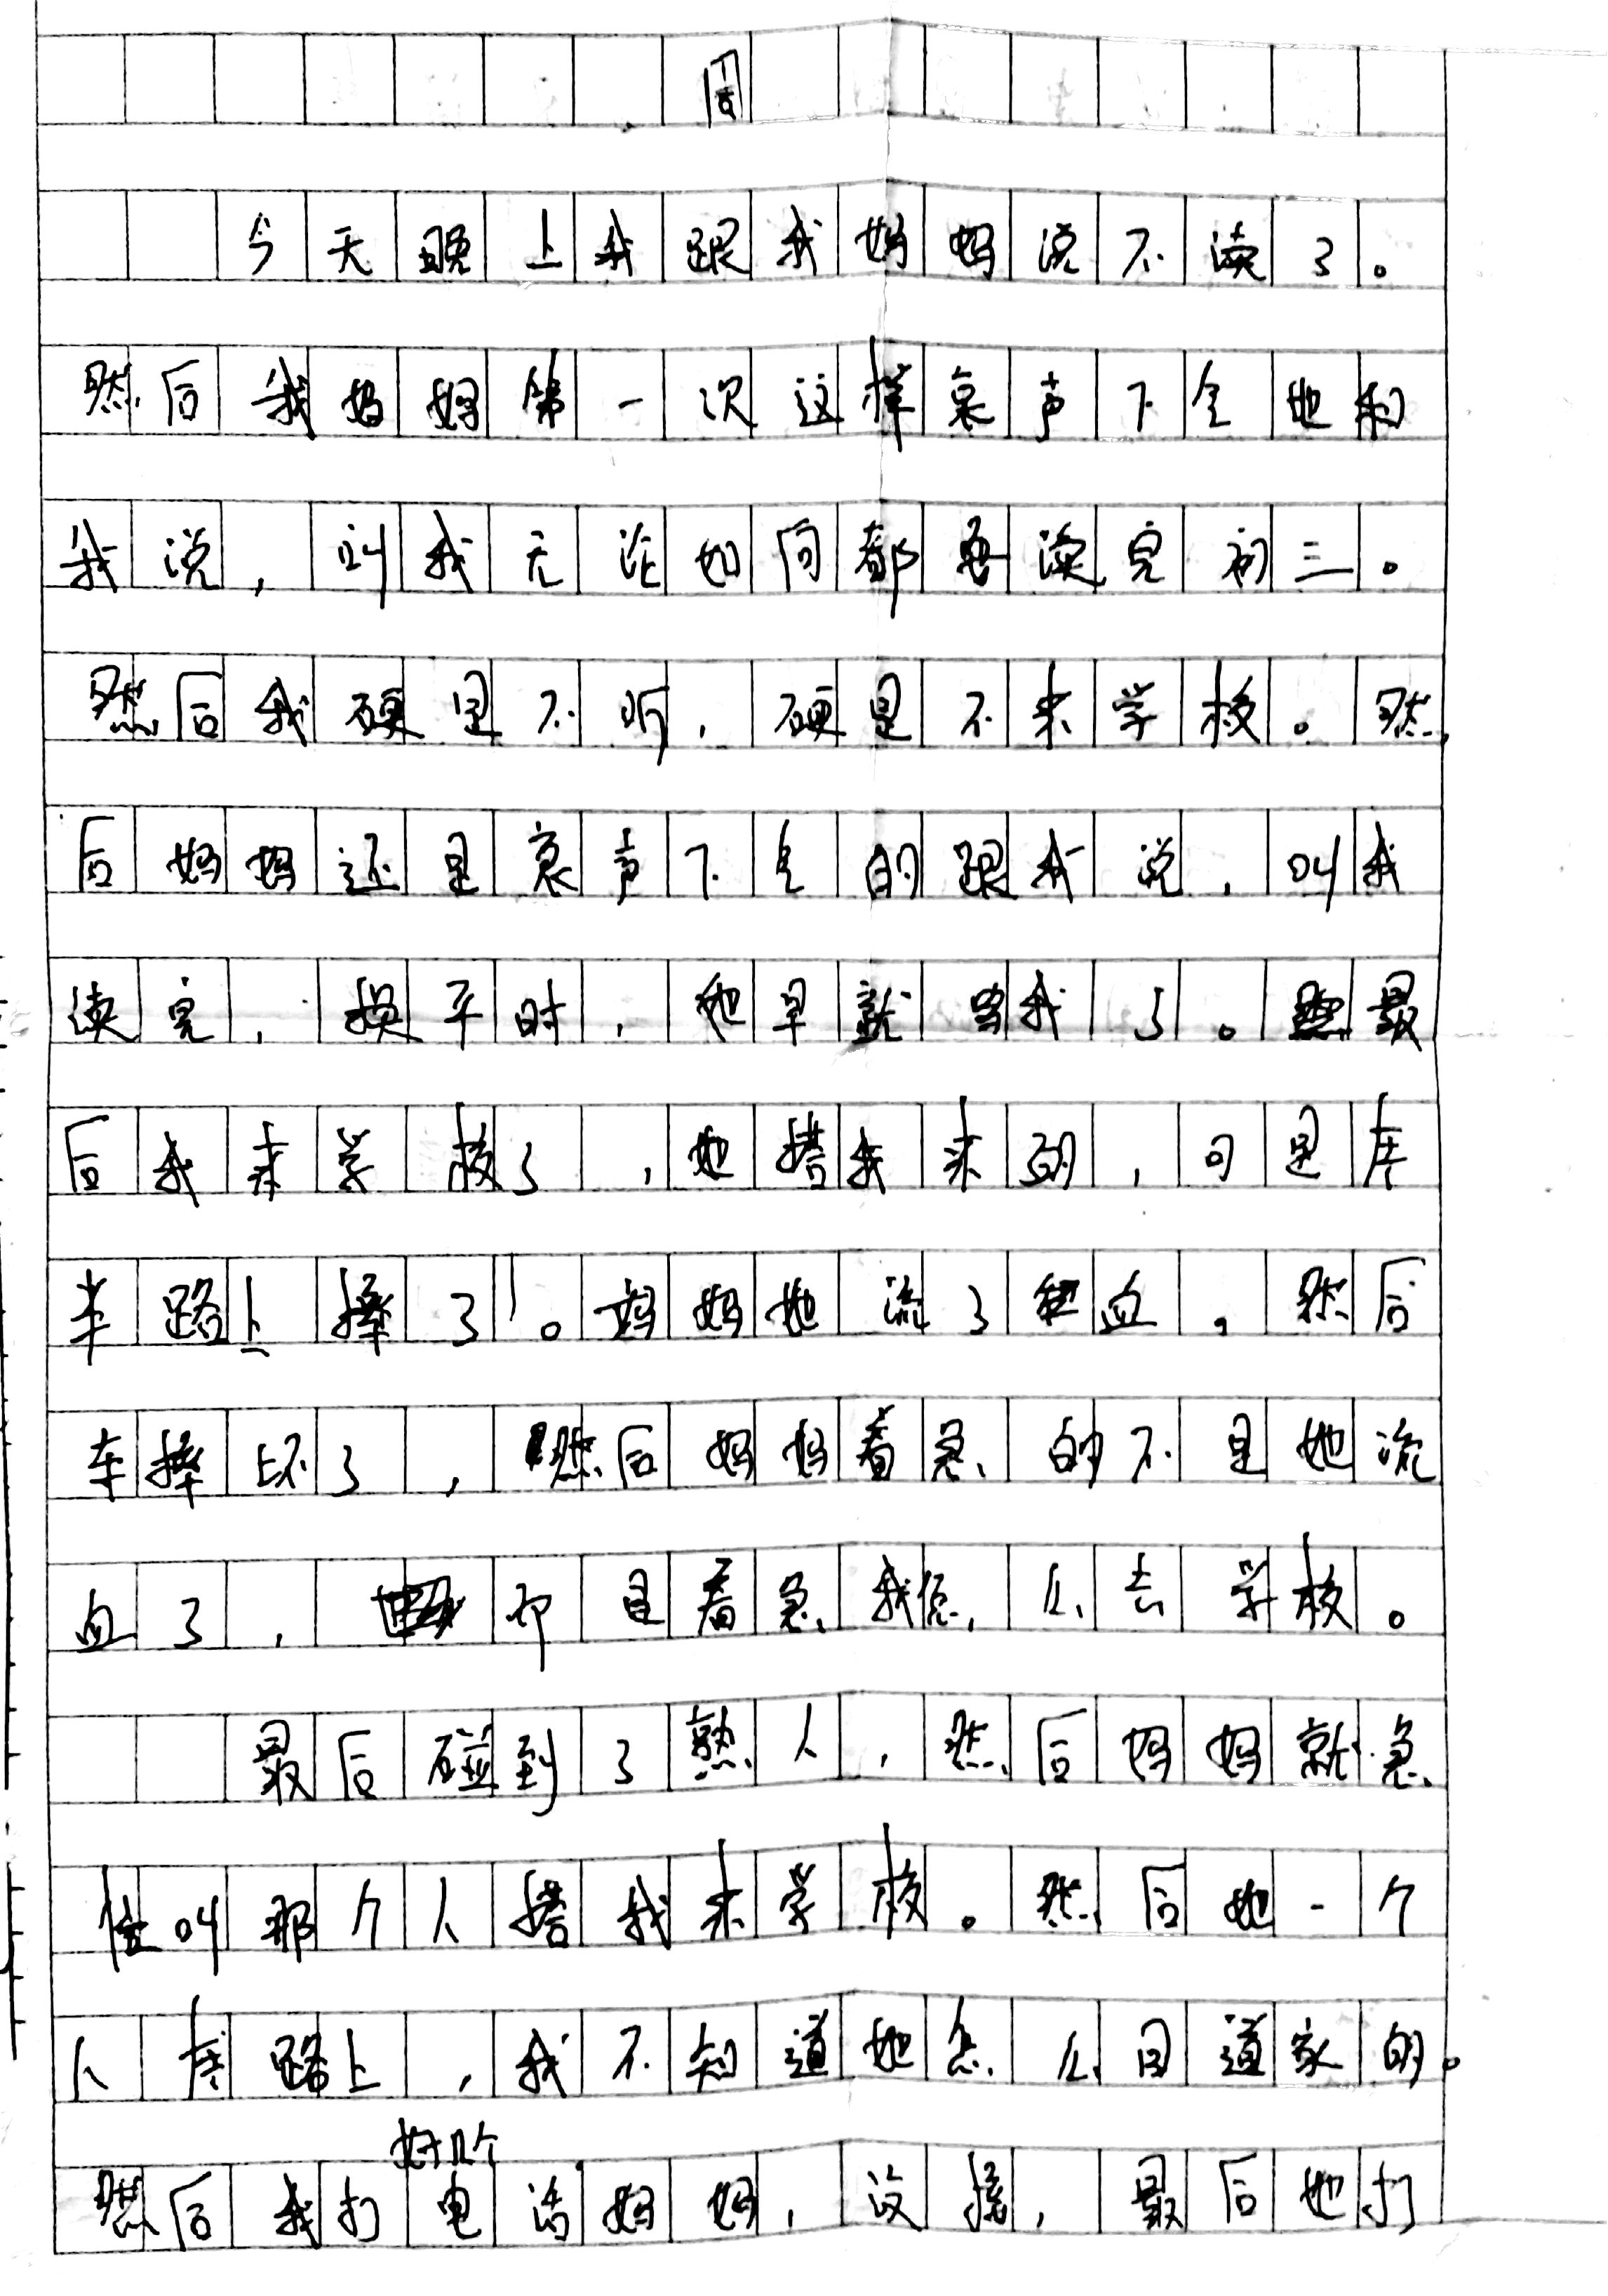 周
今天晚上我跟我妈妈说不读了。
然后我妈妈第一次这样哀声下气地和
我说,叫我无论如何都要读完初三。
然后我硬是不听,硬是不来学校。然
后妈妈还是哀声下气的跟我说,叫我
读完,换平时,她早就骂我了。最
后我来学校了,她搭我来的,可是在
半路上摔了!。妈妈她流了血,然后
车摔坏了,然后妈妈着急的不是她流
血了,却是着急我怎么去学校。
最后碰到了熟人,然后妈妈就急
忙叫那个人搭我来学校。然后她一个
人在路上,我不知道她怎么回道家的。
好几个
然后我打电话妈妈,没接,最后她打